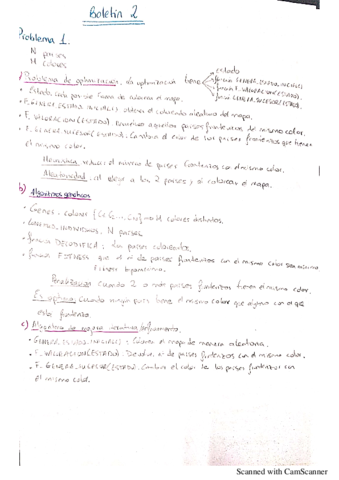 Boletín 2
Problema 1.
N países
M colores
a) Problema de optimización, la optimización tiene
estado
función GENERA_ESTADO_INICIAL()
función F. VALORACION(ESTADO)
función GENERA_SUCESOR(ESTADO)
• Estado, cada posible forma de colorear el mapa.
• F. GENERA_ESTADO_INICIAL: obtiene el coloreado aleatorio del mapa.
• F. VALORACION(ESTADO): países fronterizos del mismo color.
• F. GENERA_SUCESOR(ESTADO): Cambia el color de los países fronterizos que tienen
el mismo color.
Heurística: reducir el número de países fronterizos con el mismo color.
Aleatoriedad: al elegir a los 2 países y al colorear el mapa.
b) Algoritmos genéticos
• Genes = colores M colores distintos.
• INDIVIDUOS, N países
• función DECODIFICA: los países coloreados.
• función FITNESS: que el nº de países fronterizos con el mismo color sea mínimo
Penalización: cuando 2 o más países fronterizos tienen el mismo color.
Es óptimo: cuando ningún país tiene el mismo color que alguno con el que
esté fronterizo.
c) Algoritmo de
• GENERA_ESTADO_INICIAL: Colorea el mapa de manera aleatoria.
• F. VALORACION(ESTADO): Devuelve nº de países fronterizos con el mismo color.
• F. GENERA_SUCESOR(ESTADO): Cambia el color de los países fronterizos con
el mismo color.
Scanned with CamScanner